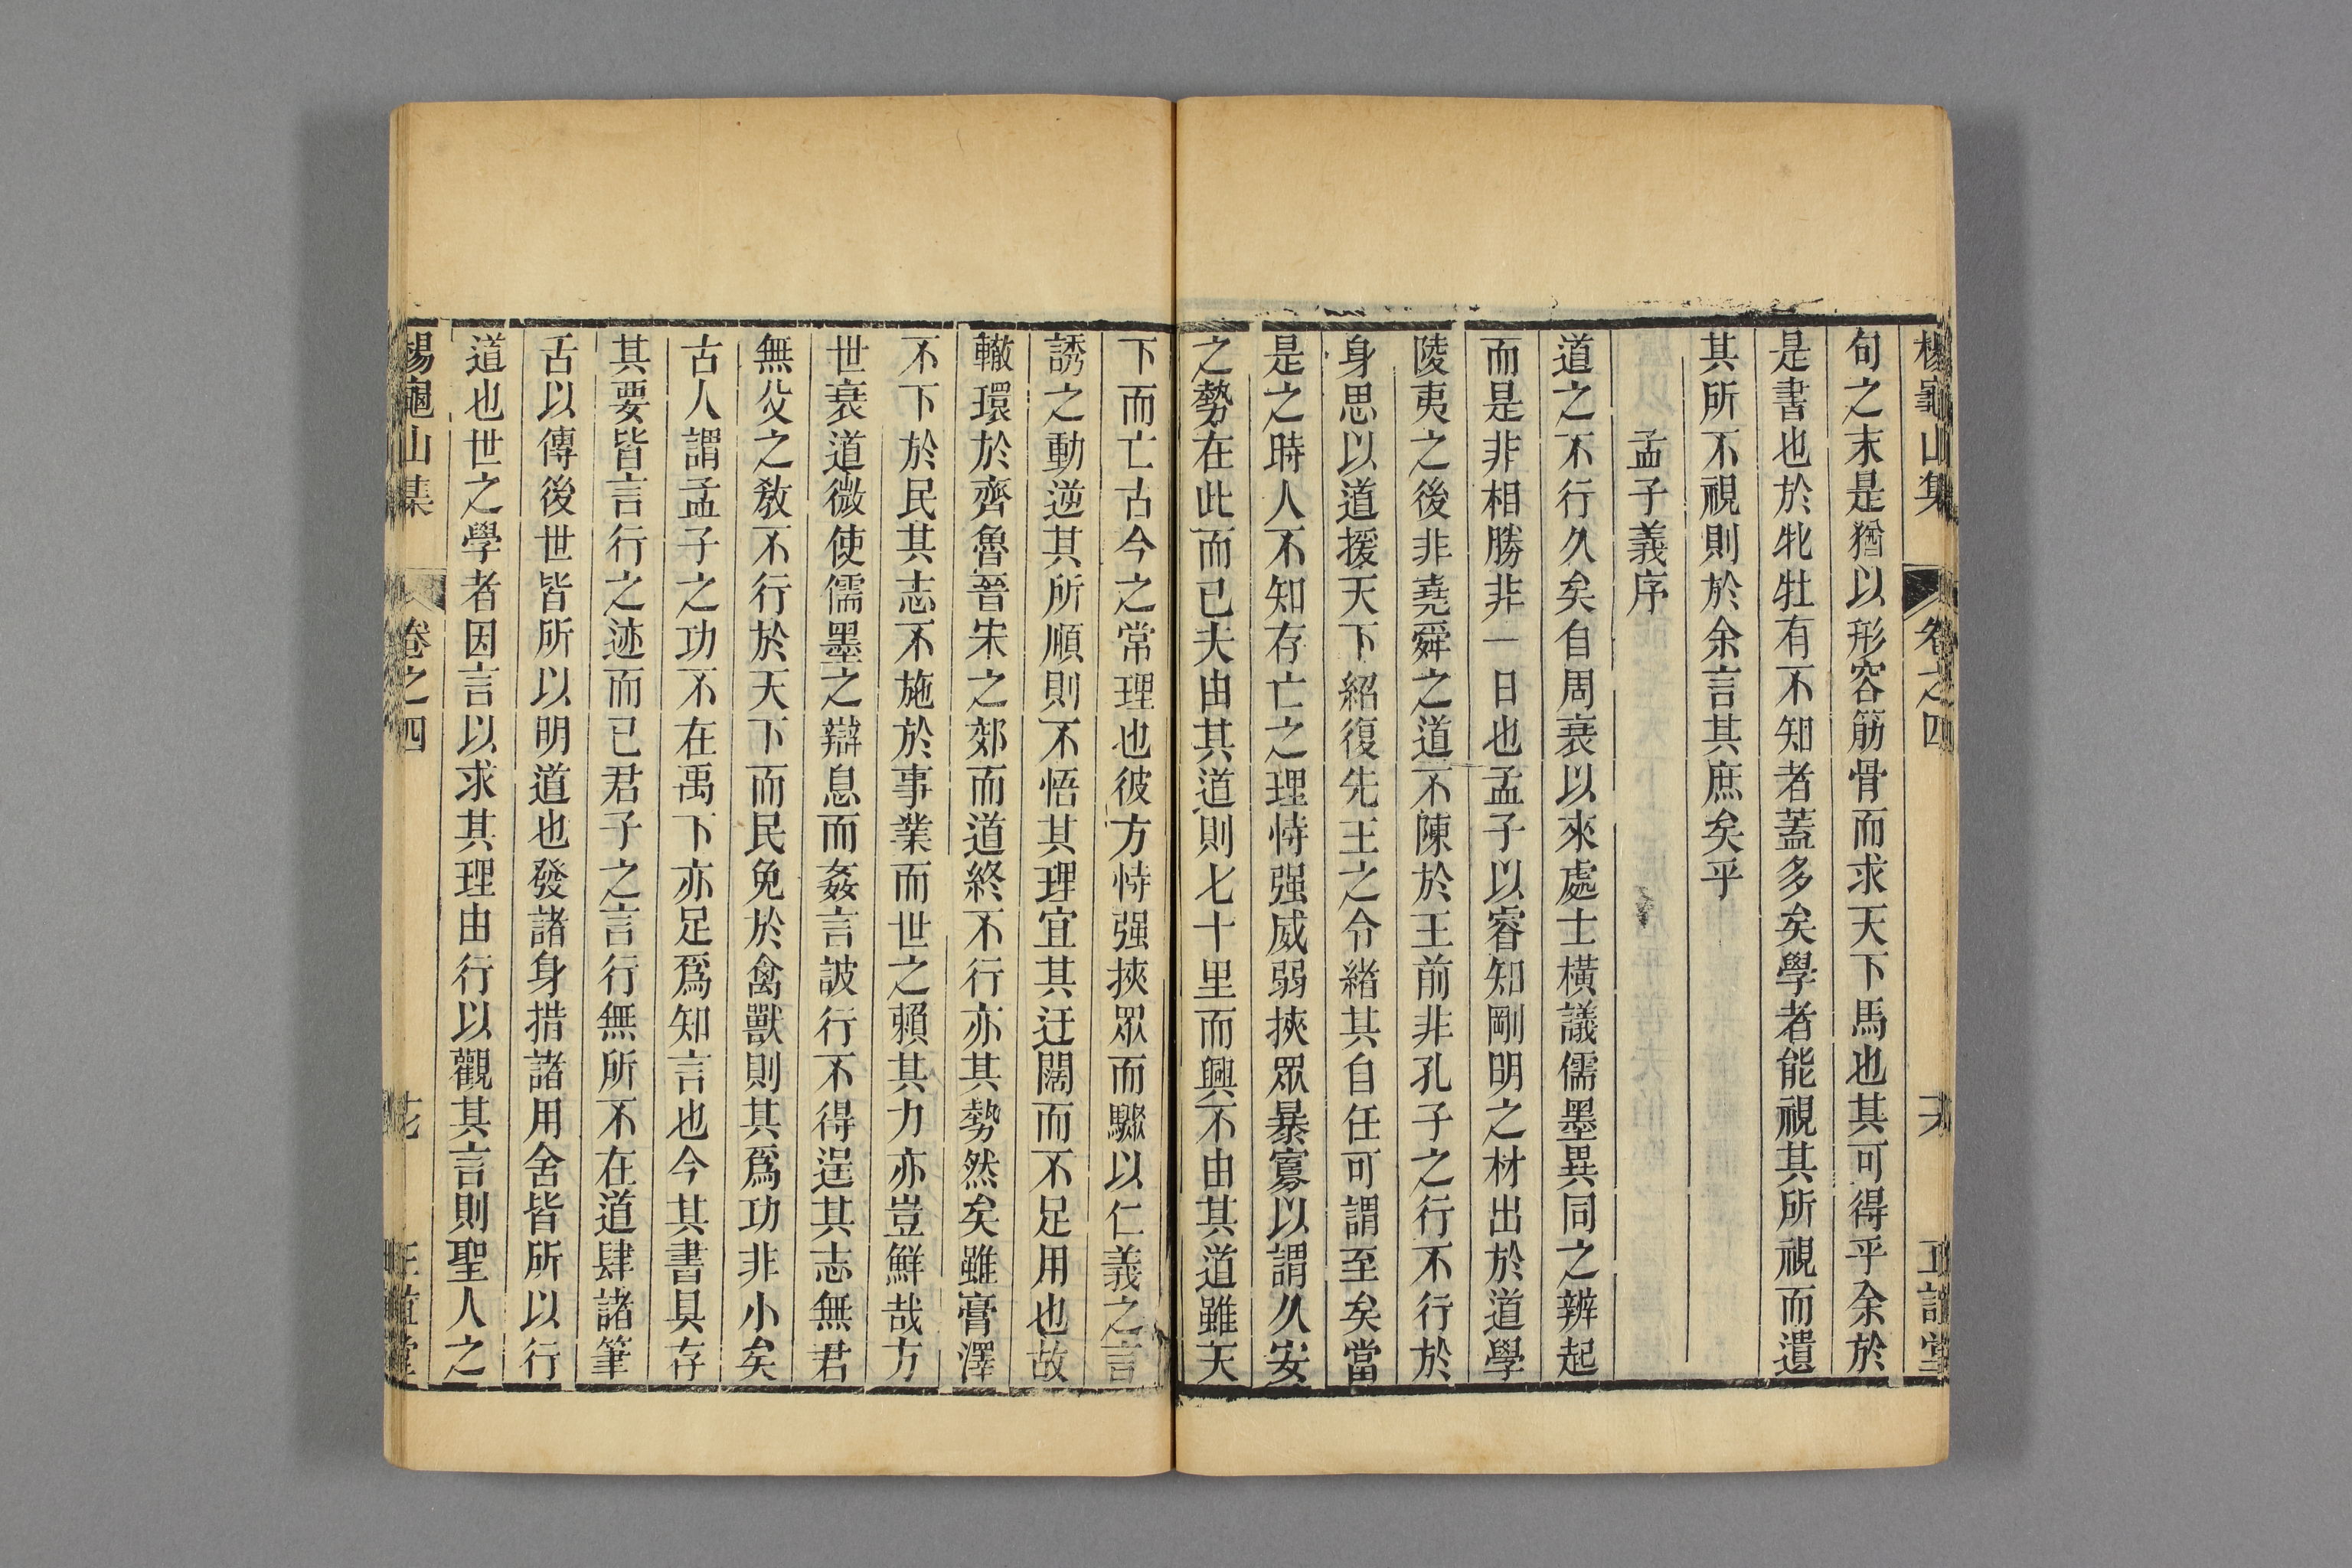 楊龜山集 卷之四 六 正誼堂
句之末是猶以形容筋骨而求天下馬也其可得乎余於
是書也於牝牡有不知者蓋多矣學者能視其所視而遺
其所不視則於余言其庶矣乎
孟子義序
道之不行久矣自周衰以來處士橫議儒墨異同之辨起
而是非相勝非一日也孟子以睿知剛明之材出於道學
陵夷之後非堯舜之道不陳於王前非孔子之行不行於
身思以道援天下紹復先王之令緒其自任可謂至矣當
是之時人不知存亡之理恃强威弱挾眾暴寡以謂久安
之勢在此而已夫由其道則七十里而興不由其道雖天
下而亡古今之常理也彼方恃强挾眾而驟以仁義之言
誘之動逆其所順則不悟其理宜其迂闊而不足用也故
轍環於齊魯晉宋之郊而道終不行亦其勢然矣雖膏澤
不下於民其志不施於事業而世之賴其力亦豈鮮哉方
世衰道微使儒墨之辯息而姦言詖行不得逞其志無君
無父之教不行於天下而民免於禽獸則其爲功非小矣
古人謂孟子之功不在禹下亦足爲知言也今其書具存
其要皆言行之迹而已君子之言行無所不在道肆諸筆
舌以傳後世皆所以明道也發諸身措諸用舍皆所以行
道也世之學者因言以求其理由行以觀其言則聖人之
楊龜山集 卷之四 正誼堂